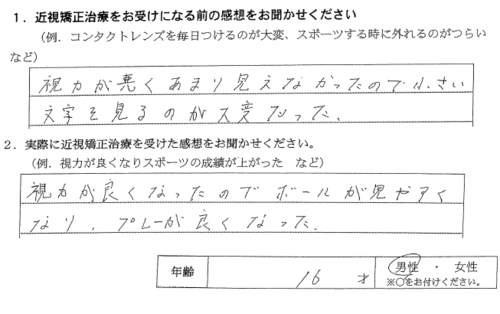 1．近視矯正治療をお受けになる前の感想をお聞かせください
（例．コンタクトレンズを毎日つけるのが大変、スポーツする時に外れるのがつらい
など）
視力が悪くあまり見えなかったので小さい
文字を見るのが大変だった．
2．実際に近視矯正治療を受けた感想をお聞かせください。
（例．視力が良くなりスポーツの成績が上がった　など）
視力が良くなったのでボールが見やすく
なり．プレーが良くなった．
年齢　16 才　男性 ・ 女性
※○をお付けください。